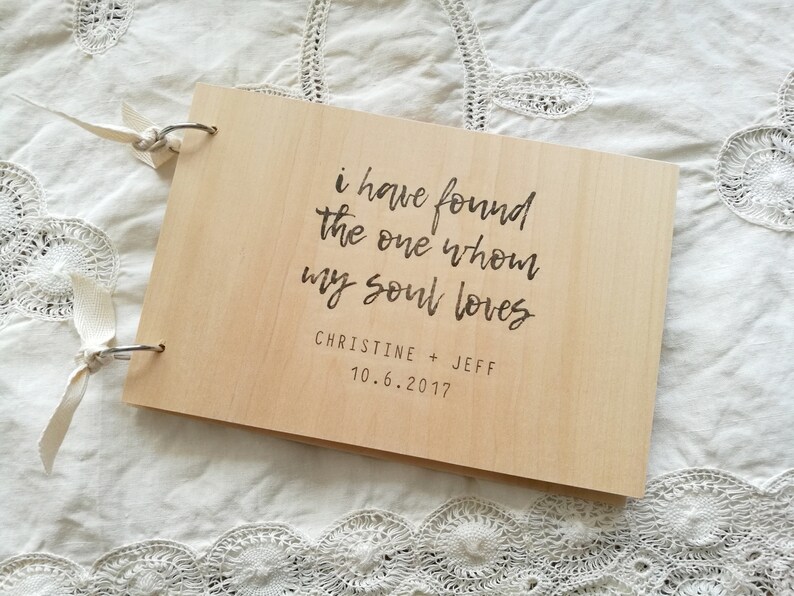 i have found
the one whom
my soul loves
CHRISTINE + JEFF
10.6.2017